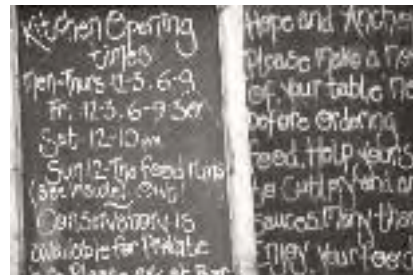 Kitchen Opening
times
Mon-Thurs 12-3, 6-9
Fri 12-3, 6-9
Sat 12-10pm
Sun 12-The food runs
(see inside) Out!
Conservatory is
available for Private
Please at Bar
Hope and Anchor
Please Make a No
of Your table No
before Ordering
food. Help Yours
to Cutlery and
Sauces. Many tha
Enjoy Your Food